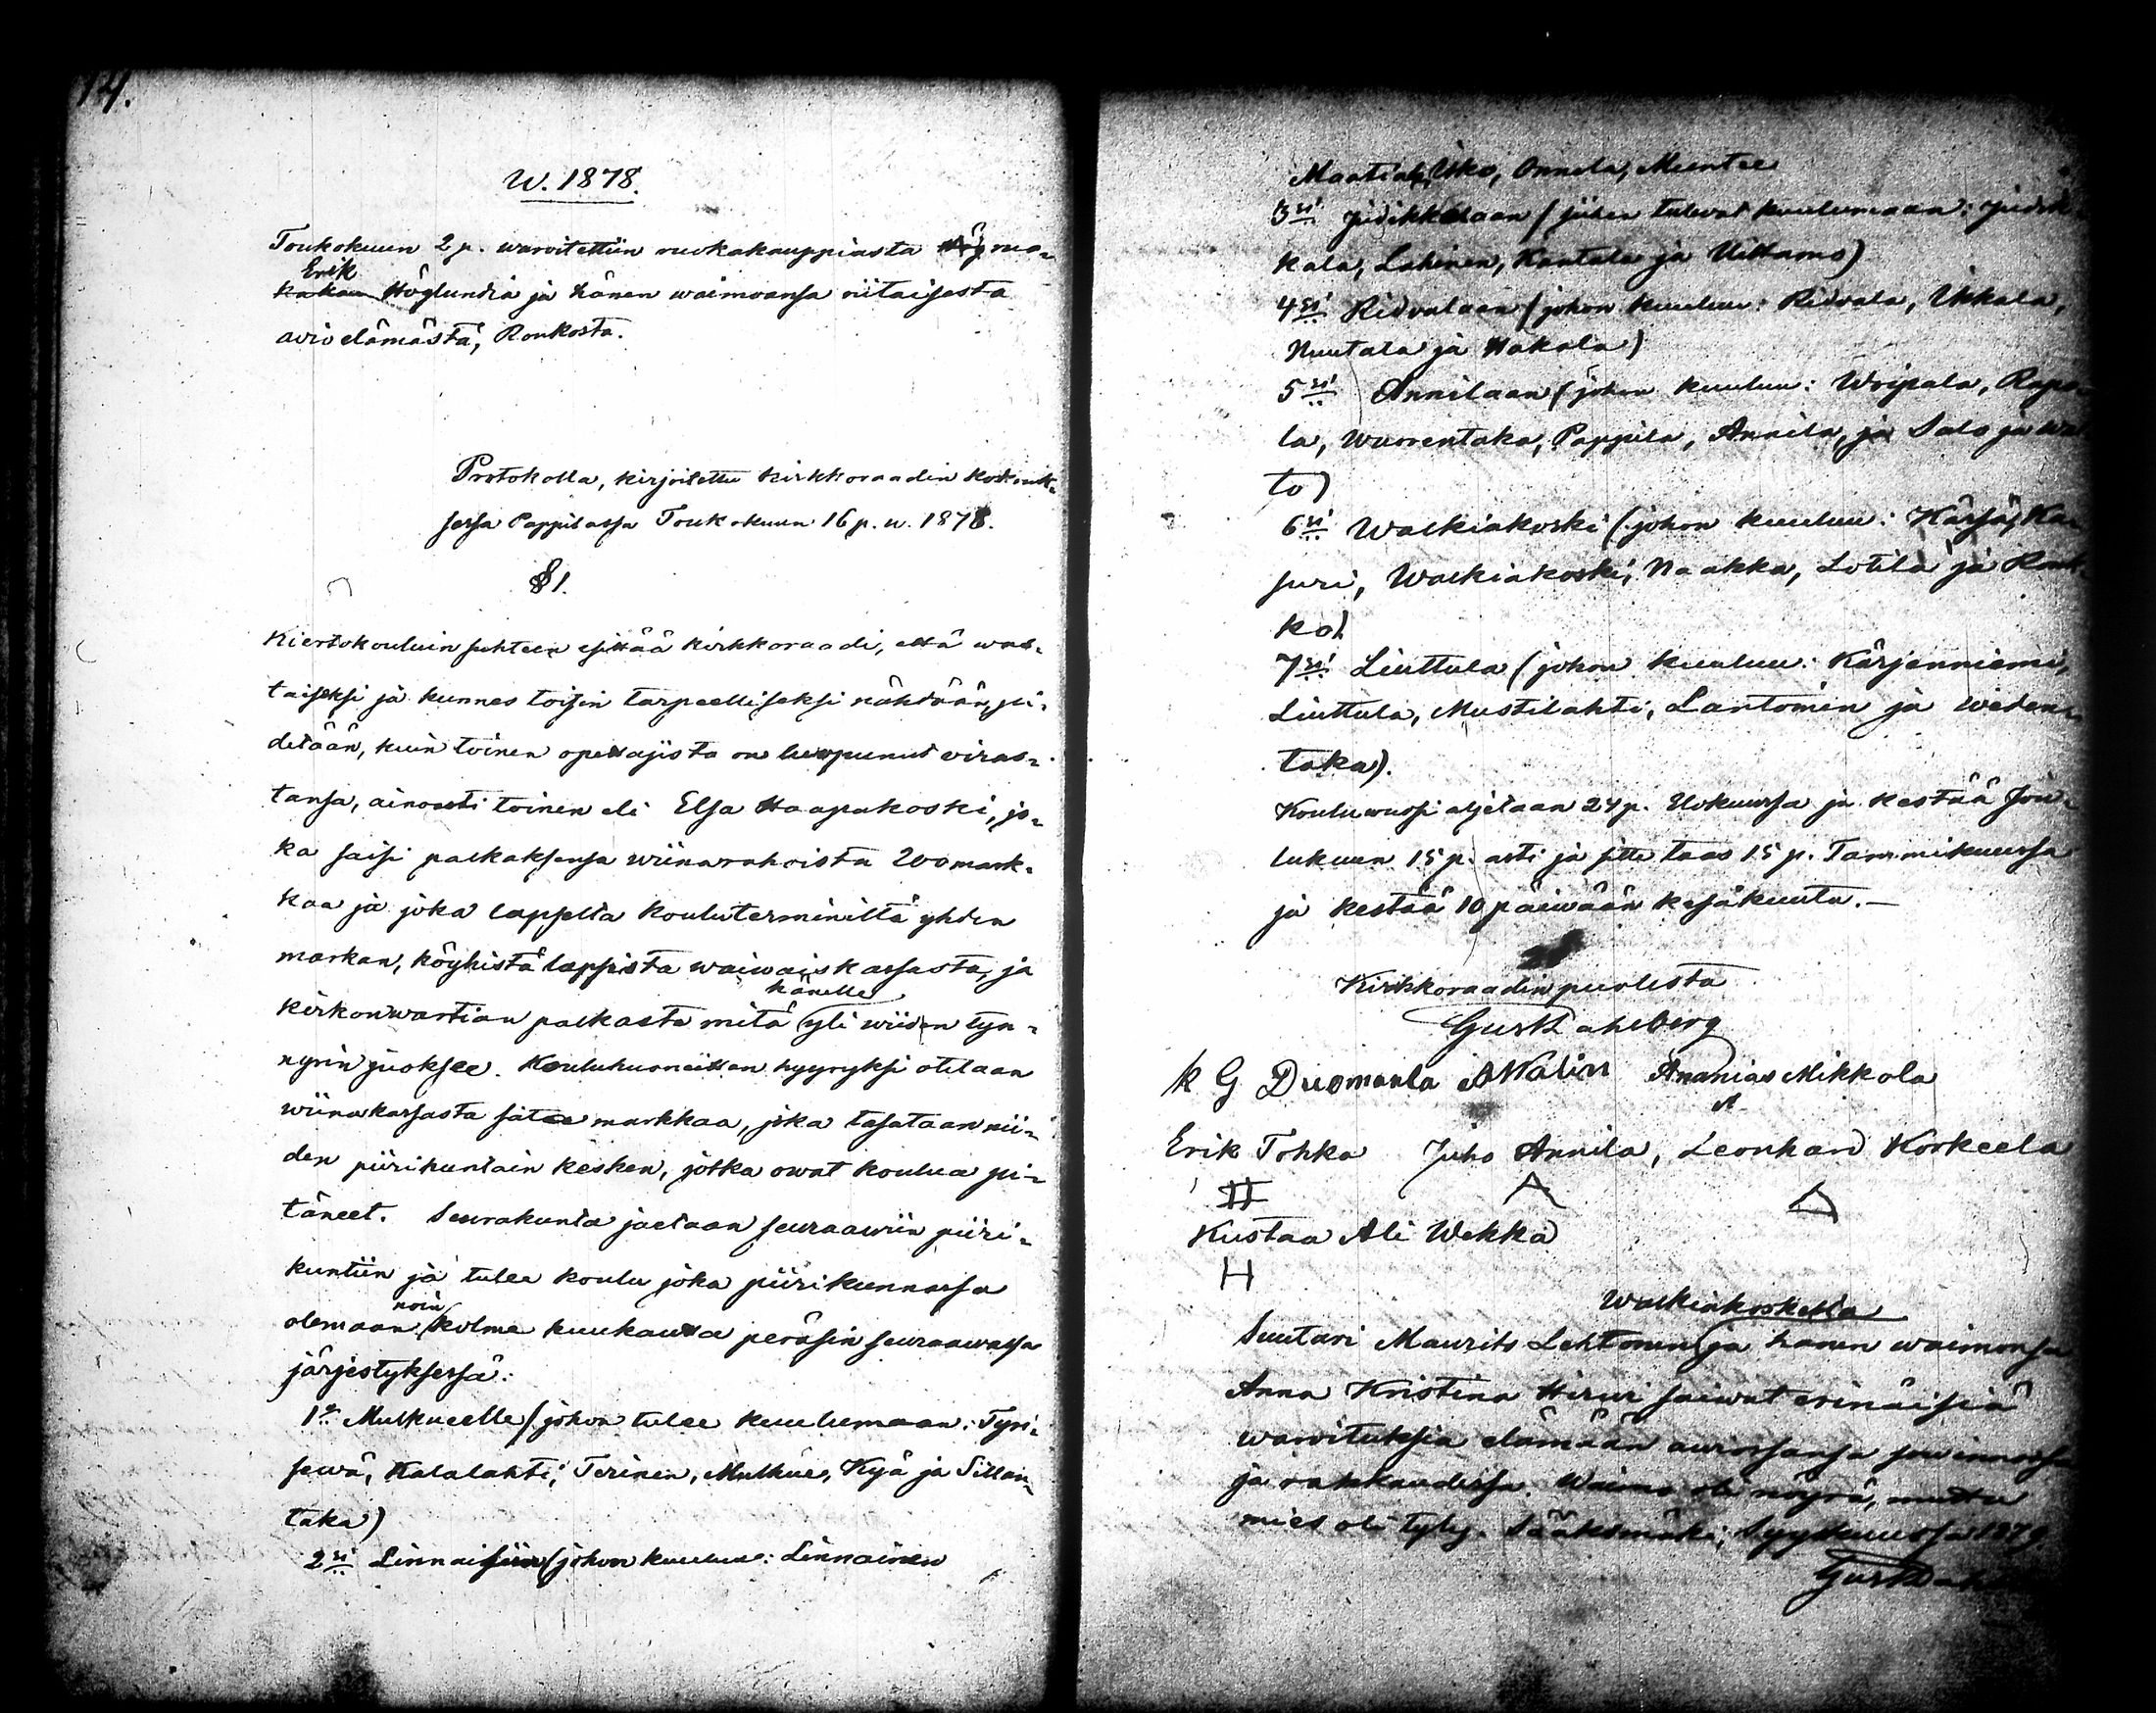 14.
W. 1878.
Toukokuun 2 p. warvitettiin ruokakauppiasta ruo-
Erik
kakau Höglundia ja hänen waimoansa riitaisesta
avio elämästä, Roukosta.
Protokolla, kirjoitettu kirkkoraadin kokouk-
sessa Pappilassa Toukokuun 16 p. w. 1878.
§ 1.
Kiertokouluin suhteen esittää kirkkoraadi, että was-
taiseksi ja kunnes toisin tarpeelliseksi nähdään, pi-
detään, kuin toinen opettajista on luopunut viras-
tansa, ainoasti toinen eli Elsa Haapakoski, jo-
ka saisi palkaksensa wiinarahoista 200 mark-
kaa ja joka lapselta kouluterminiltä yhden
markan, köyhistä lapsista waiwaiskassasta, ja
hänelle
kirkonwartian palkasta mitä yli wiiden tyn-
nyrin juoksee. Kouluhuoneitten hyyryksi otetaan
wiinakassasta sataa markkaa, joka tasataan nii-
den piirikuntain kesken, jotka owat koulua pi-
täneet. Seurakunta jaetaan seuraawiin piiri-
kuntiin ja tulee koulu joka piirikunnassa
noin
olemaan kolme kuukautta peräsin seuraawassa
järjestyksessä:
1o Mulkueelle (johon tulee kuulumaan: Tyri-
sewä, Kalalahti, Terinen, Mulkue, Kyä ja Sillan-
taka)
2si Linnaisiin (johon kuuluu: Linnainen
Maatiala, Uko, Onnela, Muntee
3si Jidikkalaan (siihen tulewat kuulumaan: Jidik-
kala, Lahinen, Kantala ja Uittamo)
4si Ridvalaan (johon kuuluu: Ridvala, Ikkala,
Nuutala ja Hakala)
5si Annilaan (johon kuuluu: Woipala, Rapo-
la, Wuorentaka, Pappila, Annila, ja Salo ja
to)
6si Walkiakoski (johon kuuluu: Kärsä, Ka-
suri, Walkiakoski, Naakka, Lotila ja Rouk-
ko)
7si Liuttula (johon kuuluu: Kärjenniemi,
Liuttula, Mustilahti, Lantomin ja Weden-
taka).
Kouluwuosi aljetaan 24 p. Elokuussa ja kestää Jou-
lukuun 15 p. asti ja sitte taas 15 p. Tammikuussa
ja kestää 10 päiwään kesäkuuta.—
Kirkkoraadin puolesta
Gust Dahlberg
K G Duomanla A Walin Ananias Mikkola
Erik Tohka Juho Annila, Leonhard Korkeela
Kustaa Ali Wekka
H
Walkiakoskelta
Suutari Maurits Lehtonen ja hänen waimonsa
Anna Kristina Hirwi saiwat erinäisiä
warvituksia elämään awiossansa sowinnossa
ja rakkaudessa. Waimo oli nöyrä, mutta
mies oli tyly. Sääksmäki, Syyskuussa 1879
Gust Dahl